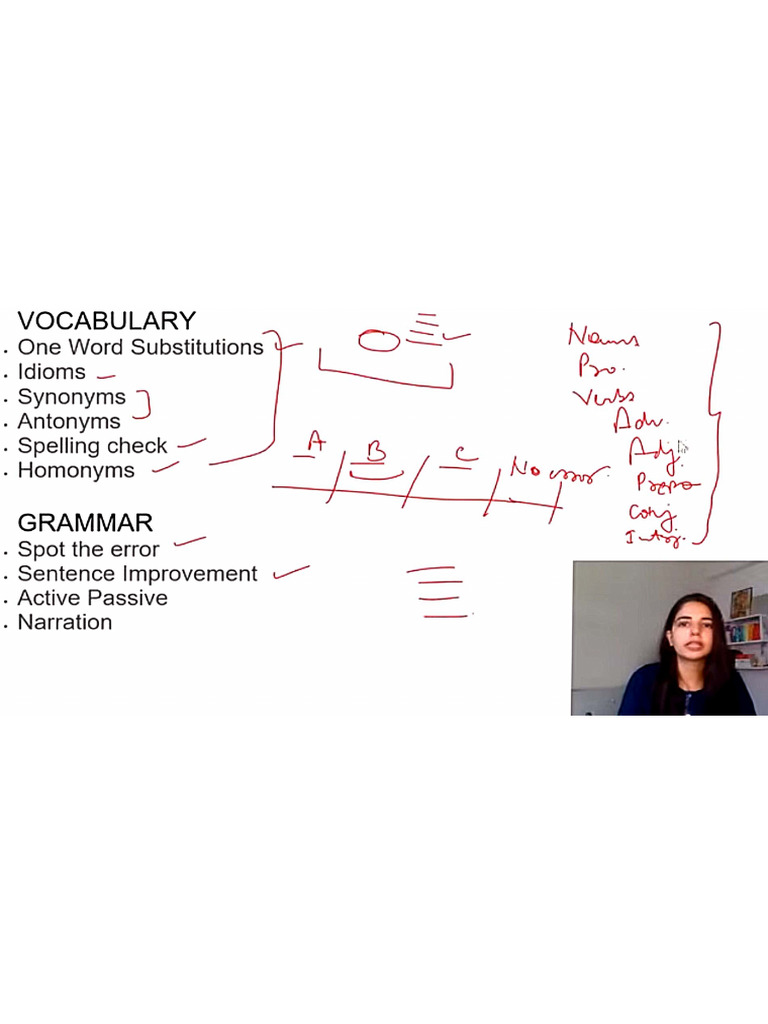 VOCABULARY
• One Word Substitutions
• Idioms
• Synonyms
• Antonyms
• Spelling check
• Homonyms
GRAMMAR
• Spot the error
• Sentence Improvement
• Active Passive
• Narration
A
B
C
No error.
Nouns
Pro.
Verbs
Adv.
Adj.
Prepo
Conj.
Interj.